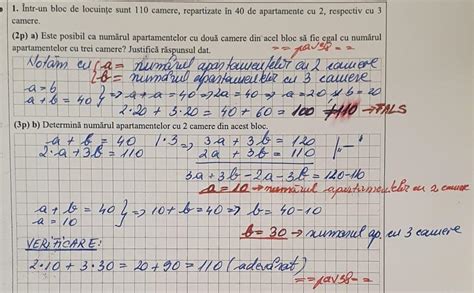 1. Într-un bloc de locuințe sunt 110 camere, repartizate în 40 de apartamente cu 2, respectiv cu 3
camere.
(2p) a) Este posibil ca numărul apartamentelor cu două camere din acel bloc să fie egal cu numărul
apartamentelor cu trei camere? Justifică răspunsul dat.
==pav38==
Notăm cu { a = numărul apartamentelor cu 2 camere
b = numărul apartamentelor cu 3 camere
a = b
a + b = 40 } => a + a = 40 => 2a = 40 => a = 20 și b = 20
2·20 + 3·20 = 40 + 60 = 100 ≠ 110 → FALS
(3p) b) Determină numărul apartamentelor cu 2 camere din acest bloc.
a + b = 40 |·3 => 3a + 3b = 120
2·a + 3b = 110 2a + 3b = 110 |"-"
3a + 3b - 2a - 3b = 120 - 110
a = 10 → numărul apartamentelor cu 2 camere
a + b = 40
a = 10 } => 10 + b = 40 => b = 40 - 10
b = 30 → numărul ap. cu 3 camere
VERIFICARE:
2·10 + 3·30 = 20 + 90 = 110 (adevărat)
==pav38==